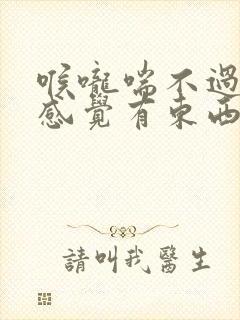 喉嚨喘不過
感覺有東西
請叫我醫生